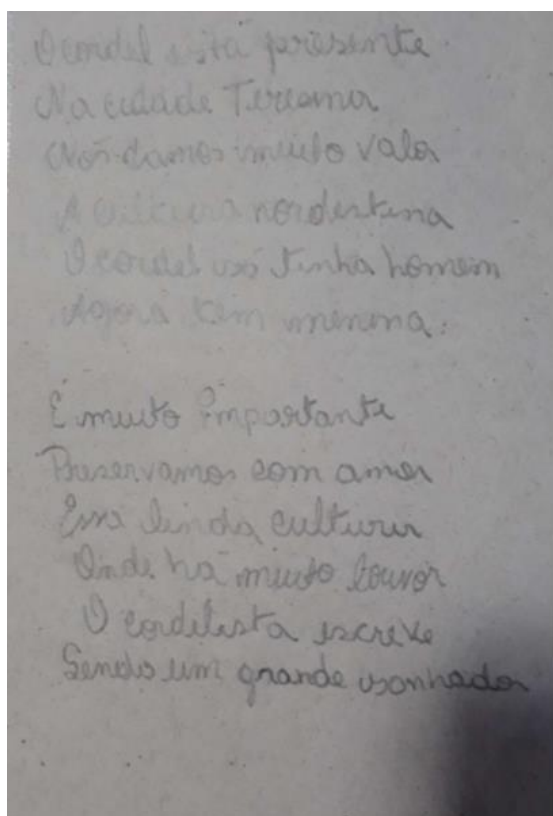 O cordel está presente
Na cidade Teresina
Nós damos muito valor
A cultura nordestina
O cordel só tinha homem
Agora tem menina.
É muito importante
Preservamos com amor
Essa linda cultura
Onde há muito louvor
O cordelista escreve
Sendo um grande sonhador